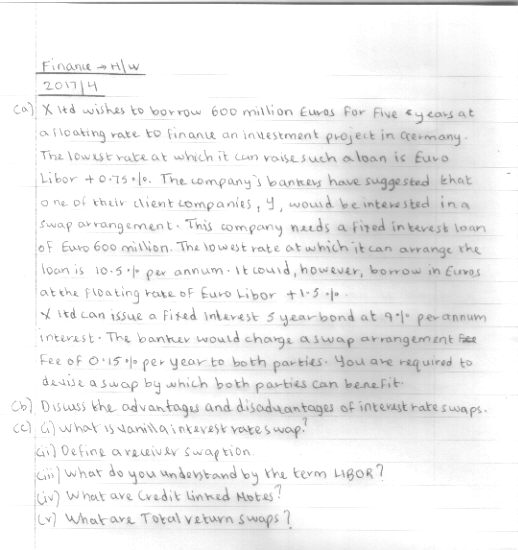 Finance → H/W
2017/4
(a) X ltd wishes to borrow 600 million Euros for Five years at
a floating rate to finance an investment project in Germany.
The lowest rate at which it can raise such a loan is Euro
Libor +0.75%. The company's bankers have suggested that
one of their client companies, Y, would be interested in a
swap arrangement. This company needs a fixed interest loan
of Euro 600 million. The lowest rate at which it can arrange the
loan is 10.5% per annum. It could, however, borrow in Euros
at the floating rate of Euro Libor +1.5%.
X ltd can issue a fixed interest 5 year bond at 9% per annum
interest. The banker would charge a swap arrangement fee
fee of 0.15% per year to both parties. You are required to
devise a swap by which both parties can benefit.
(b) Discuss the advantages and disadvantages of interest rate swaps.
(c) (i) What is vanilla interest rate swap?
(ii) Define a receiver swaption.
(iii) What do you understand by the term LIBOR?
(iv) What are Credit Linked Notes?
(v) What are Total return swaps?